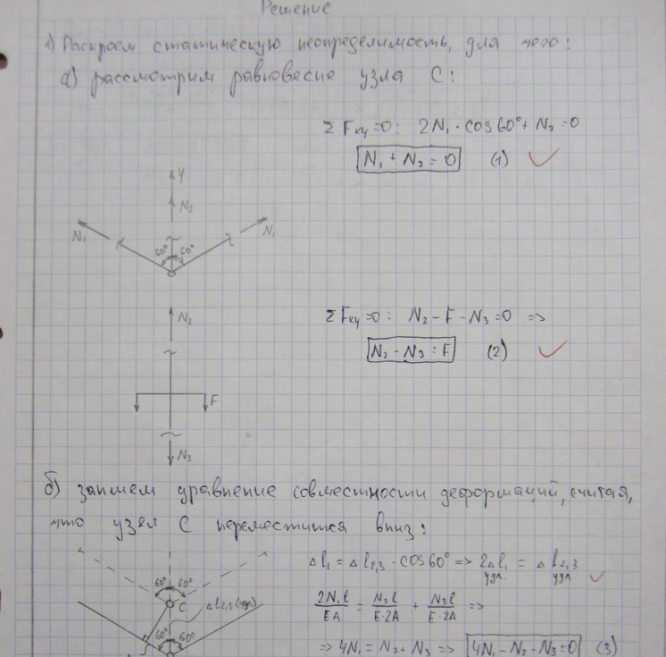 Решение
1) Раскроем статическую неопределимость, для чего:
а) рассмотрим равновесие узла С:
ΣFкy=0: 2N₁·cos60°+N₂=0
N₁+N₂=0 (1)
y
N₂
N₁ N₁
60° 60°
N₂
ΣFкy=0: N₂-F-N₃=0 =>
N₂-N₃=F (2)
F
N₃
б) запишем уравнение совместности деформаций, считая,
что узел С переместится вниз:
Δl₁=Δl₂,₃·cos60° => 2Δl₁=Δl₂,₃
удл. удл.
60° 60°
C
Δl₂,₃(удл)
2N₁l/EA=N₂l/E·2A+N₃l/E·2A =>
60° 60°
=> 4N₁=N₂+N₃ => 4N₁-N₂-N₃=0 (3)